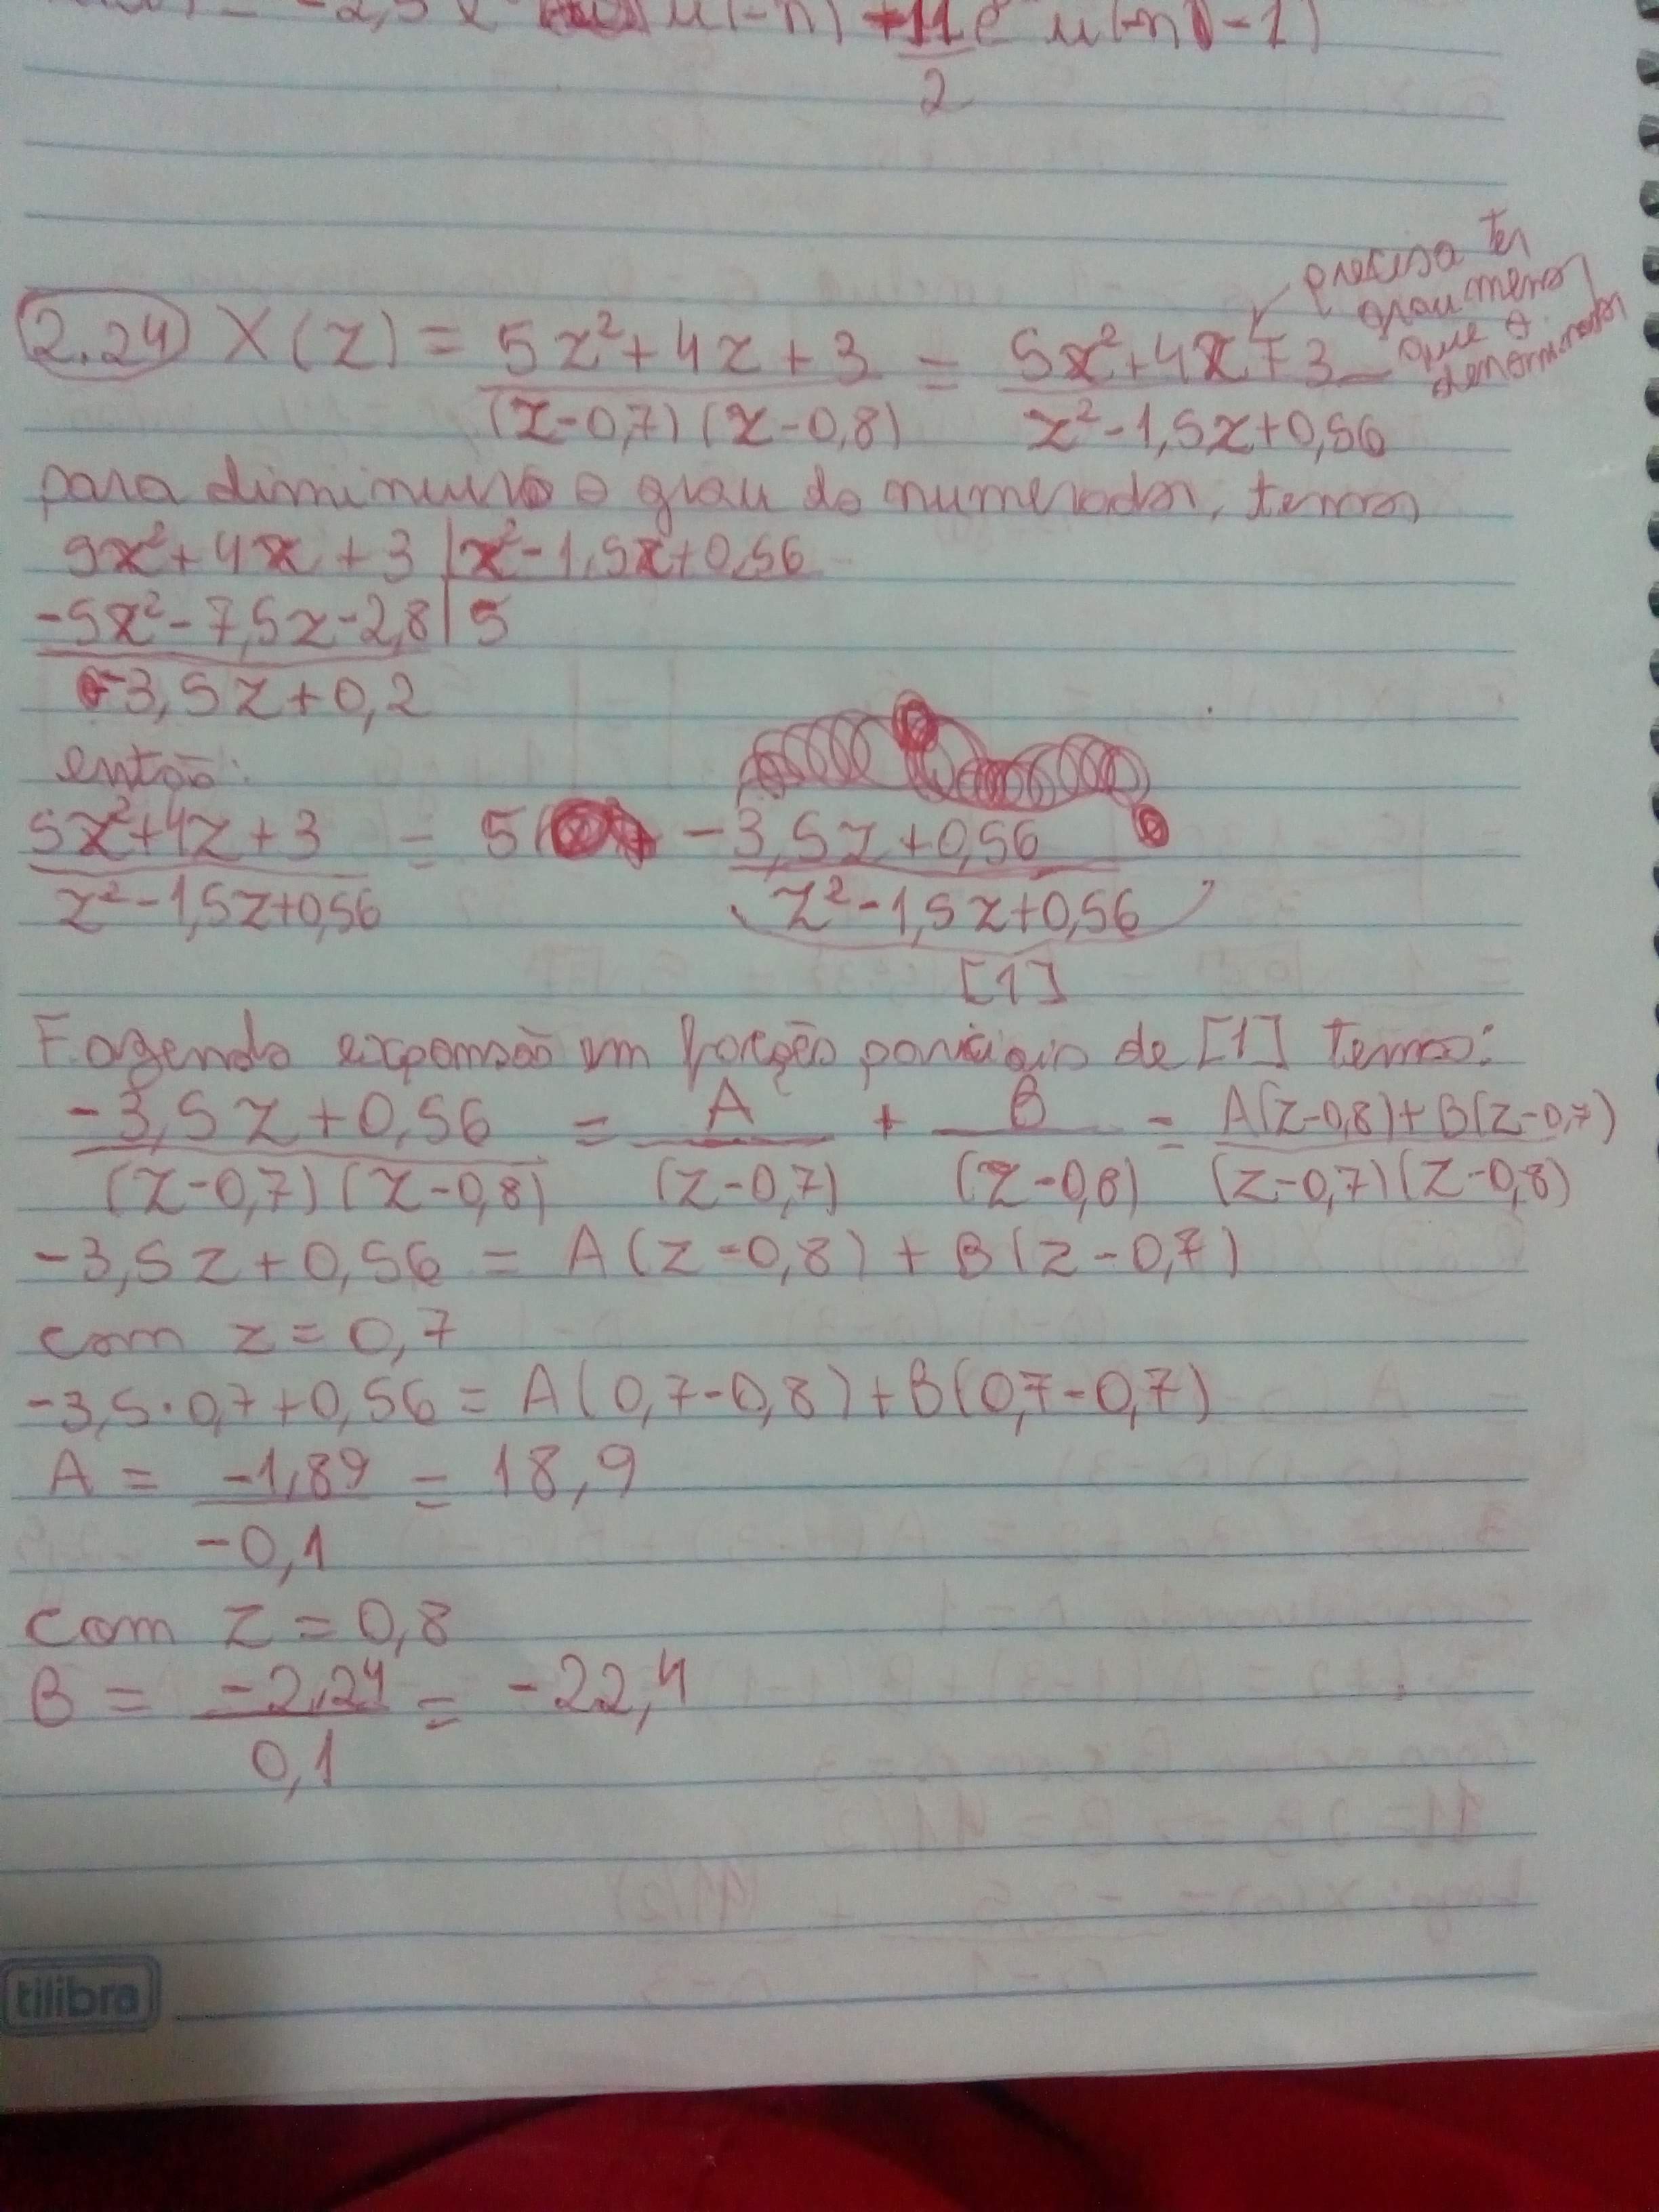 = -2,5 u(-n) + 11 e u(-n-1)
2
2.24) X(z) = 5z²+4z+3 = 5z²+4z+3
(z-0,7)(z-0,8) z²-1,5z+0,56
precisa ter
grau menor
que o
denominador
para diminuir o grau do numerador, temos
5z²+4z+3 | z²-1,5z+0,56
-5z²-7,5z-2,8 | 5
-3,5z+0,2
então:
5z²+4z+3 = 5 -3,5z+0,56
z²-1,5z+0,56 z²-1,5z+0,56
[1]
Fazendo expansão em frações parciais de [1] temos:
-3,5z+0,56 = A + B = A(z-0,8)+B(z-0,7)
(z-0,7)(z-0,8) (z-0,7) (z-0,8) (z-0,7)(z-0,8)
-3,5z+0,56 = A(z-0,8)+B(z-0,7)
com z=0,7
-3,5·0,7+0,56=A(0,7-0,8)+B(0,7-0,7)
A = -1,89 = 18,9
-0,1
com z=0,8
B = -2,24 = -22,4
0,1
tilibra